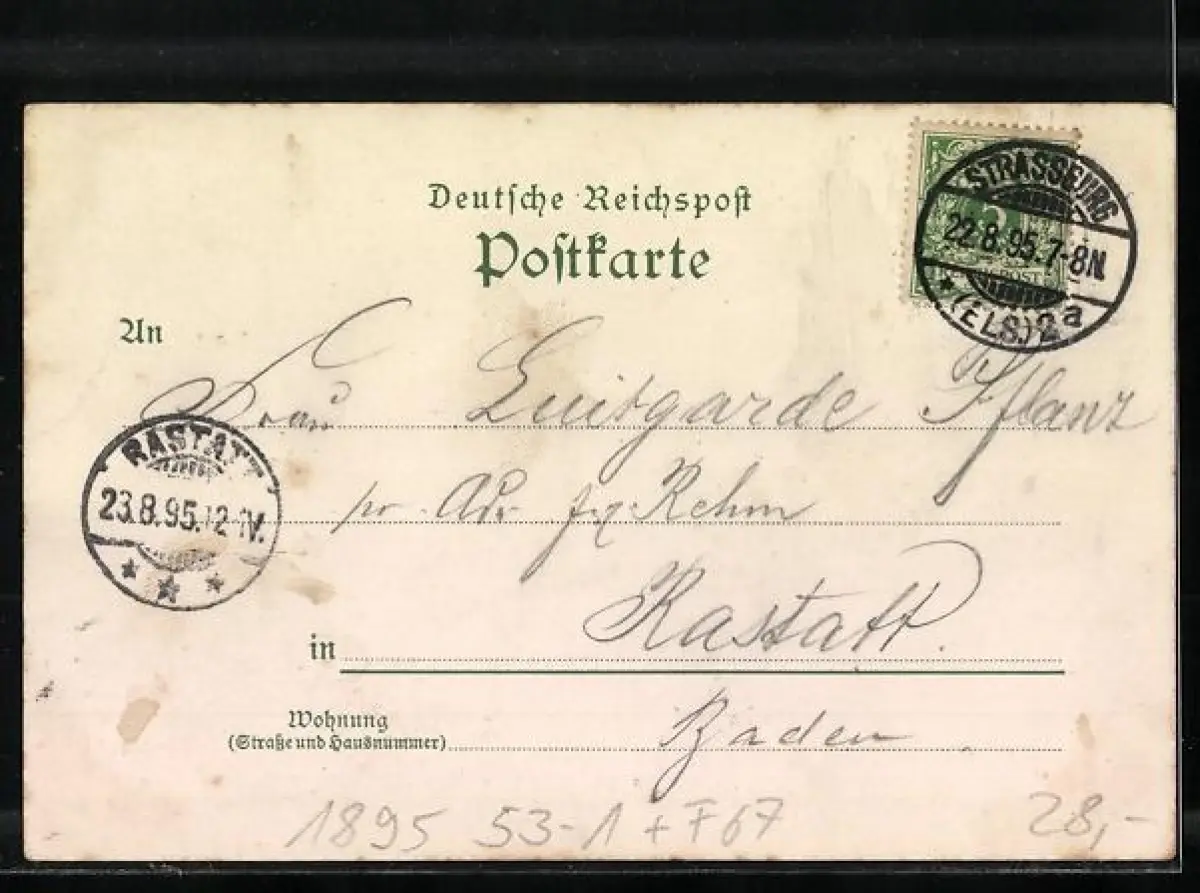 Deutsche Reichspost
Postkarte
STRASSBURG
22.8.95.7-8N.
* (ELS.) 2a
An
Frau Luitgarde Pflanz
RASTATT
23.8.95.12-1V.
pr. Adr. Rehm
in Rastatt.
Wohnung
(Straße und Hausnummer)
Baden
1895 53-1 + F67
28,-